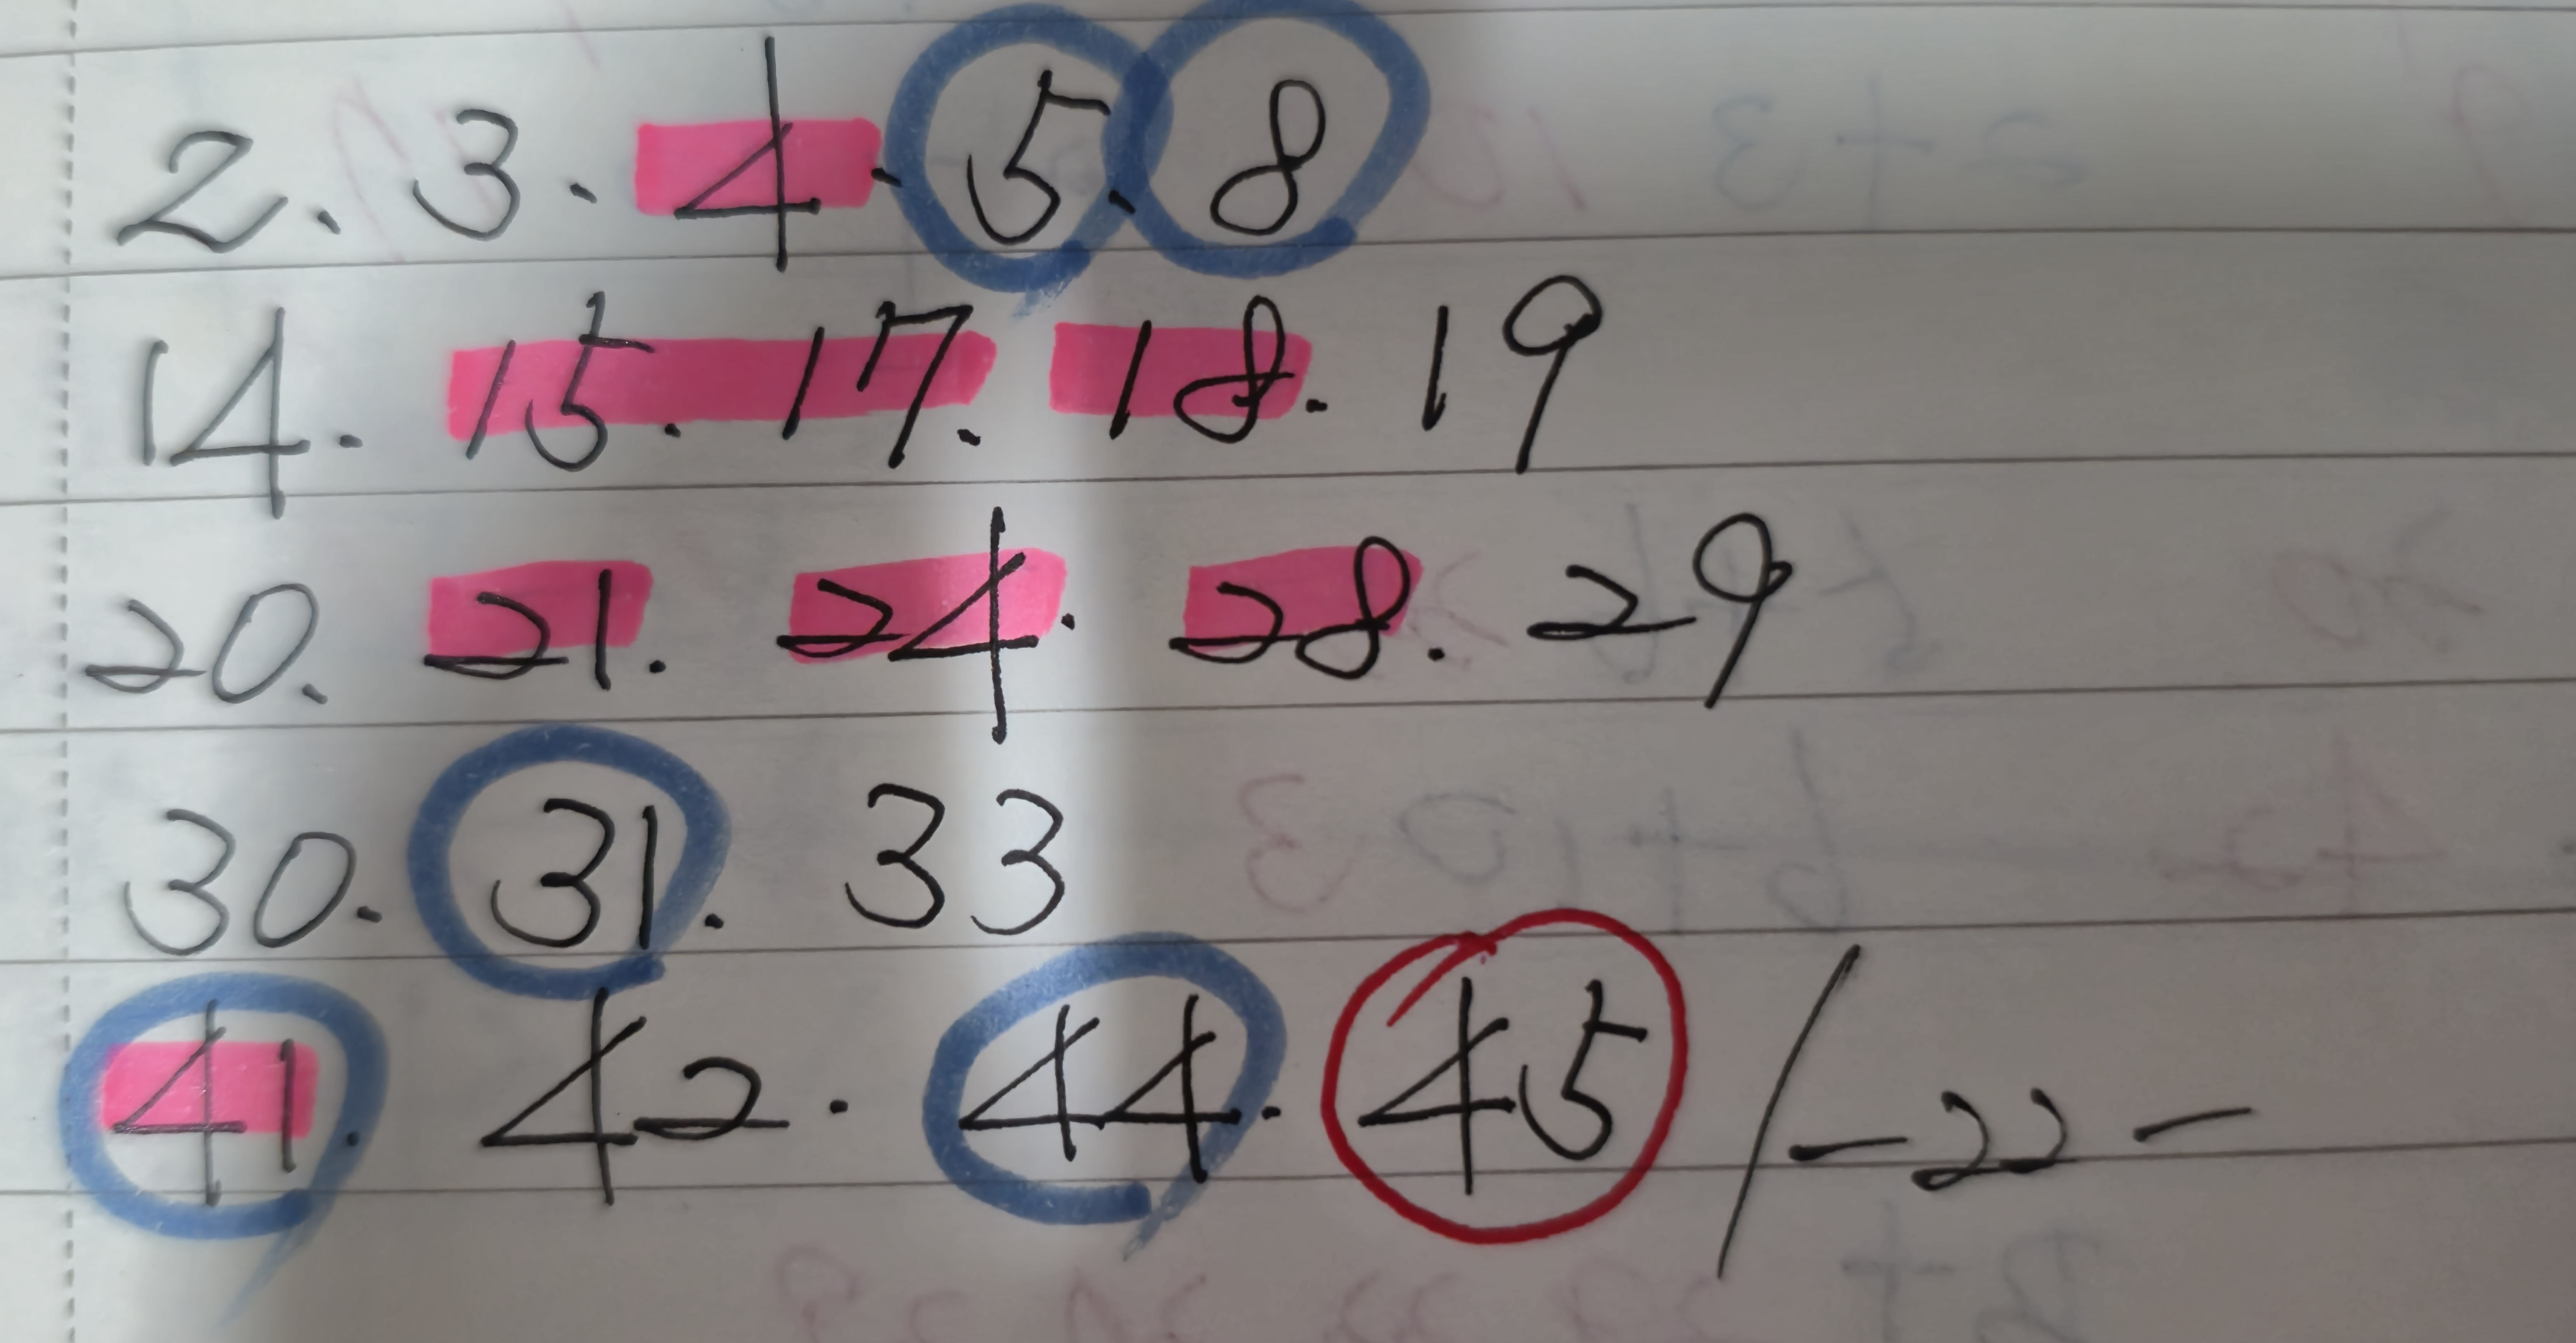 2. 3. 4. 5. 8
14. 15. 17. 18. 19
20. 21. 24. 28. 29
30. 31. 33
41. 42. 44. 45 / -22-